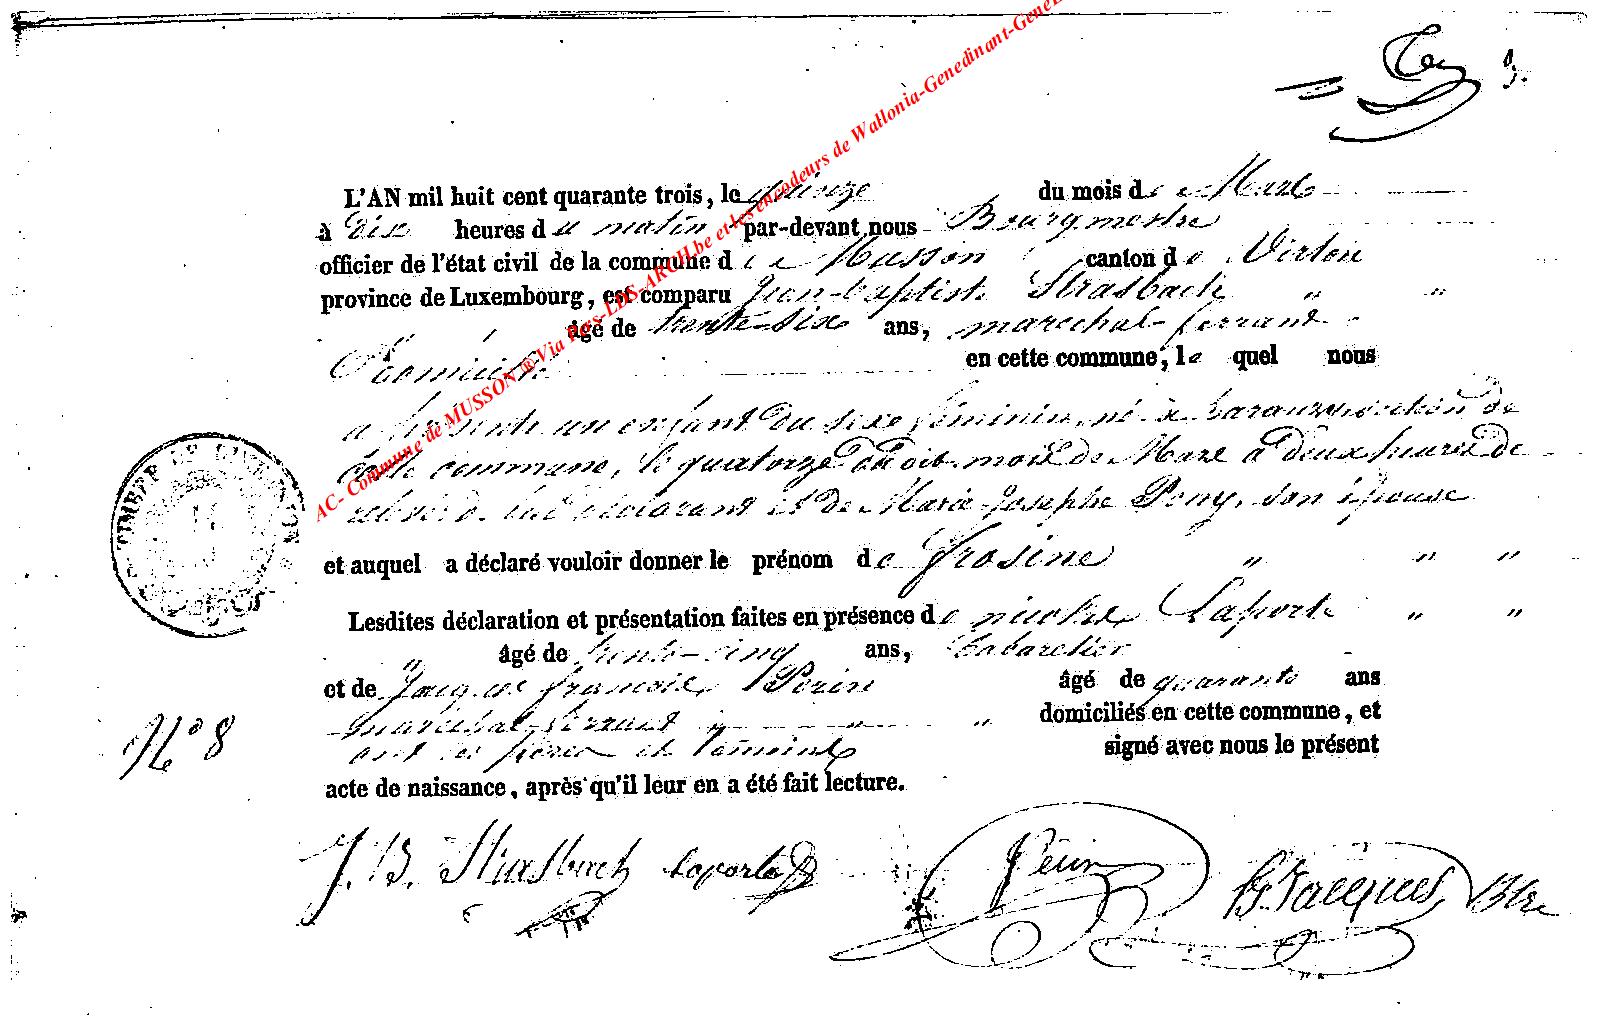 3.
L'AN mil huit cent quarante trois, le quinze du mois de Mars
à dix heures du matin par-devant nous Bourgmestre
officier de l'état civil de la commune de Musson canton de Virton
province de Luxembourg, est comparu Jean-Baptiste Strasbach " "
âgé de trente-six ans, maréchal-ferrant
Domicilié en cette commune, lequel nous
a présenté un enfant du sexe féminin, né à Baranzy section de
cette commune, le quatorze dudit mois de Mars à deux heures de
déclarant et de Marie Josephe Pony, son épouse
et auquel a déclaré vouloir donner le prénom de Frosine " " "
Lesdites déclaration et présentation faites en présence de nicolas Laporte " "
" âgé de trente-cinq ans, Cabaretier
et de Jacques françois Perin âgé de quarante ans
maréchal-ferrant " " " domiciliés en cette commune, et
ont les père et témoins signé avec nous le présent
acte de naissance, après qu'il leur en a été fait lecture.
N° 8
J. B. Strasbach Laporte Périn Jacques Btre
TIMBRE
AC- Commune de MUSSON @ Via Pgs-LDS-ARCH.be et les encodeurs de Wallonia-Genedinant-Gene